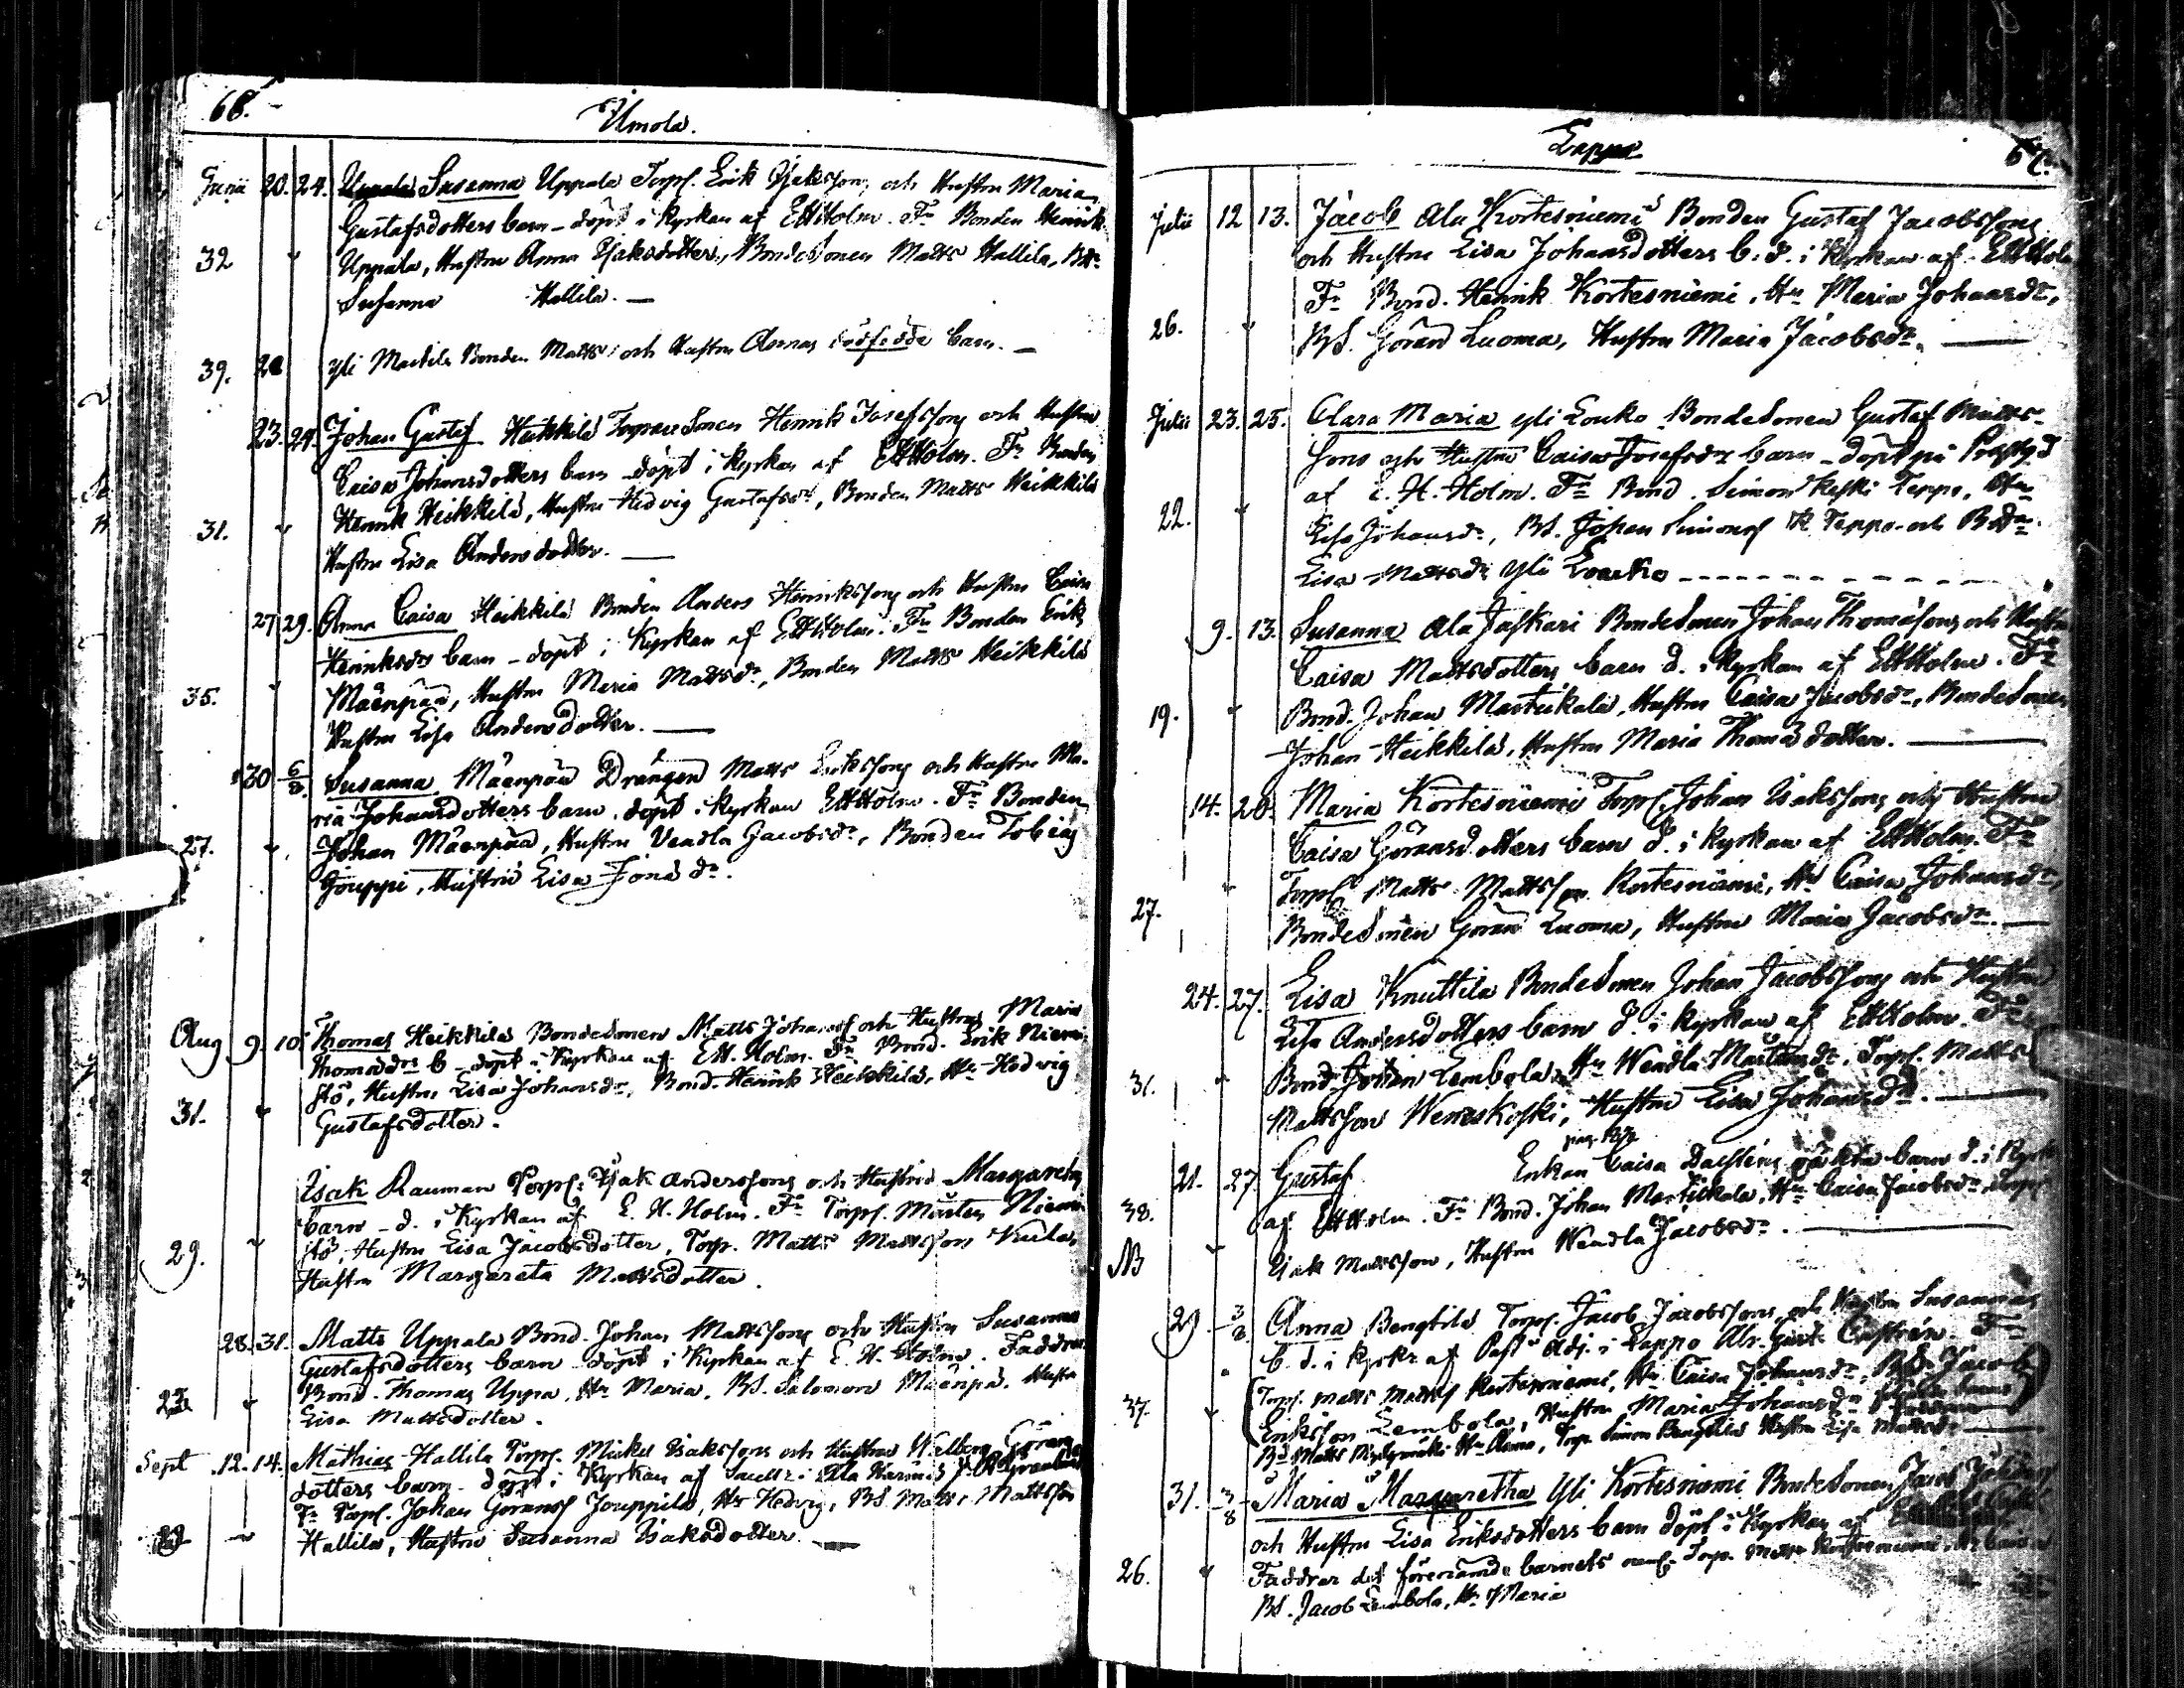 66.
Ilmola.
Junii 20. 24. Susanna Uppala Torp. Erik Isakssons och Hustru Maria
Gustafsdotters barn - döpt i Kyrkan af EHHolm. Fr Bonden Henrik
32 Uppala, Hustru Anna Isaksdotter, Bondesonen Matts Hallila, BDr
Susanna Hallila. —
39. 20 Yli Marttila Bonden Matts och Hustru Annas dödfödde barn. —
23. 24. Johan Gustaf Heikkilä Henrik Josefssons och Hustru
Caisa Johansdotters barn döpt i Kyrkan af EHHolm. Fr Bonden
Henrik Heikkilä, Hustru Hedvig Gustafsdr, Bonden Matts Heikkilä
31. Hustru Lisa Andersdotter. —
27. 29. Anna Caisa Heikkilä Bonden Anders Henrikssons och Hustru Caisa
Henriksdrs barn - döpt i Kyrkan af EHHolm. Fr Bonden Erik
35. Mäenpää, Hustru Maria Mattsdr, Bonden Matts Heikkilä
Hustru Lisa Andersdotter. —
30 6/8. Susanna Mäenpää Drängen Matts Erikssons och Hustru Ma-
ria Johansdotters barn, döpt i Kyrkan EHHolm. Fr Bonden
27. Johan Mäenpää, Hustru Vendla Jacobsdr, Bonden Tobias
Jouppi, Hustru Lisa Jonädr.
Aug 9. 10. Thomas Heikkilä Bondesonen Matts Johanss och Hustrus Maria
Thomädrs b - döpt i Kyrkan af EH. Holm. Fr Bond. Erik Niemi-
stö, Hustru Lisa Johansdr, Bond. Henrik Heikkilä, Hu Hedvig
31. Gustafsdotter.
Isak Rauman Torp. Isak Anderssons och Hustru Margareta
barn - d. i Kyrkan af E. H. Holm. Fr Torp. Mårten Niemi-
29. stö, Hustru Lisa Jacobsdotter, Torp. Matts Mattsson
Hustru Margareta Mattsdotter.
28. 31. Matts Uppala Bond. Johan Mattssons och Hustru Susanna
Gustafsdotters barn döpt i Kyrkan af E. H. Holm. Faddrar
Bond. Thomas Uppa, Hu Maria, BS. Salomon Mäenpä. Hustru
Lisa Mattsdotter.
Sept 12. 14. Mathias Hallila Torp. Mickel Isakssons och Hustru Walborg Göran
dotters barn - döpt i Kyrkan af
Fr Torp. Johan Göranss Jouppila, Hu Hedvig, BS. Matts Mattsson
Hallila, Hustru Susanna Isaksdotter. —
Lappo
67.
Julii 12 13. Jacob Ala Kortesniemi Bonden Gustaf Jacobssons
och Hustru Lisa Johansdotters b. d. i Kyrkan af EHHolm
Fr Bond. Henrik Kortesniemi, Hu Maria Johansdr,
26. BS. Göran Luoma, Hustru Maria Jacobsdr. —
Julii 23. 25. Clara Maria Yli Louko Bondesonen Gustaf Matts-
sons och Hustru Caisa Josefsdrs barn - döpt på Prästgd
af E. H. Holm. Fr Bond. Simon Keski Teppo, Hu
22. Lisa Johansdr, BS. Johan Simonss K Teppo och BDr
Lisa Mattsdr Yli Louko - - - - - - - -
9. 13. Susanna Ala Jaskari Bondesonen Johan Thomassons och Hustru
Caisa Mattsdotters barn d. i Kyrkan af EHHolm. Fr
19. Bond. Johan Martikala, Hustru Caisa Jacobsdr, Bondesonen
Johan Heikkilä, Hustru Maria Thomädotter. —
14. 20. Maria Kortesniemi Torp. Johan Isakssons och Hustru
Caisa Göransdotters barn d. i Kyrkan af EHHolm. Fr
Torp. Matts Mattsson Kortesniemi, Hu Caisa Johansdr,
27. Bondesonen Göran Luoma, Hustru Maria Jacobsdr. —
24. 27. Lisa Knuttila Bondesonen Johan Jacobssons och Hustru
Lisa Andersdotters barn d. i Kyrkan af EHHolm. Fr
31. Bond. Johan Lembola, Hu Wendla Mårtensdr. Torp. Matts
Mattsson Weneskoski, Hustru Lisa Johansdr. —
21. 27. Gustaf Enkan Caisa oäkta barn d. i Kyrk
38. af EHHolm. Fr Bond. Johan Martikala, Hu Caisa Jacobsdr, Torp
NB Isak Mattsson, Hustru Wendla Jacobsdr. —
29. 3/8 Anna Bengtila Torp. Jacob Jacobssons och Hustru Susannas
b. d. i Kyrk. af Past. Adj. i Lappo Castrén. Fr
37. (Torp. Matts Matss Kortesniemi, Hu Caisa Johansdr, BS. Jacob
Eriksson Lembola, Hustru Maria Johansdr
Bd Matts Hu Anna, Torp. Simon Bengtila Hustru Lisa Mattsdr —
31. 3/8 Maria Margaretha Yli Kortesniemi Bondesonen Jacob
och Hustru Lisa Eriksdotters barn döpt i Kyrkan af
26. Faddrar det förenämde barnets neml. Torp. Matts Kortesniemi, Hu Caisa
BS. Jacob Lembola, Hu Maria